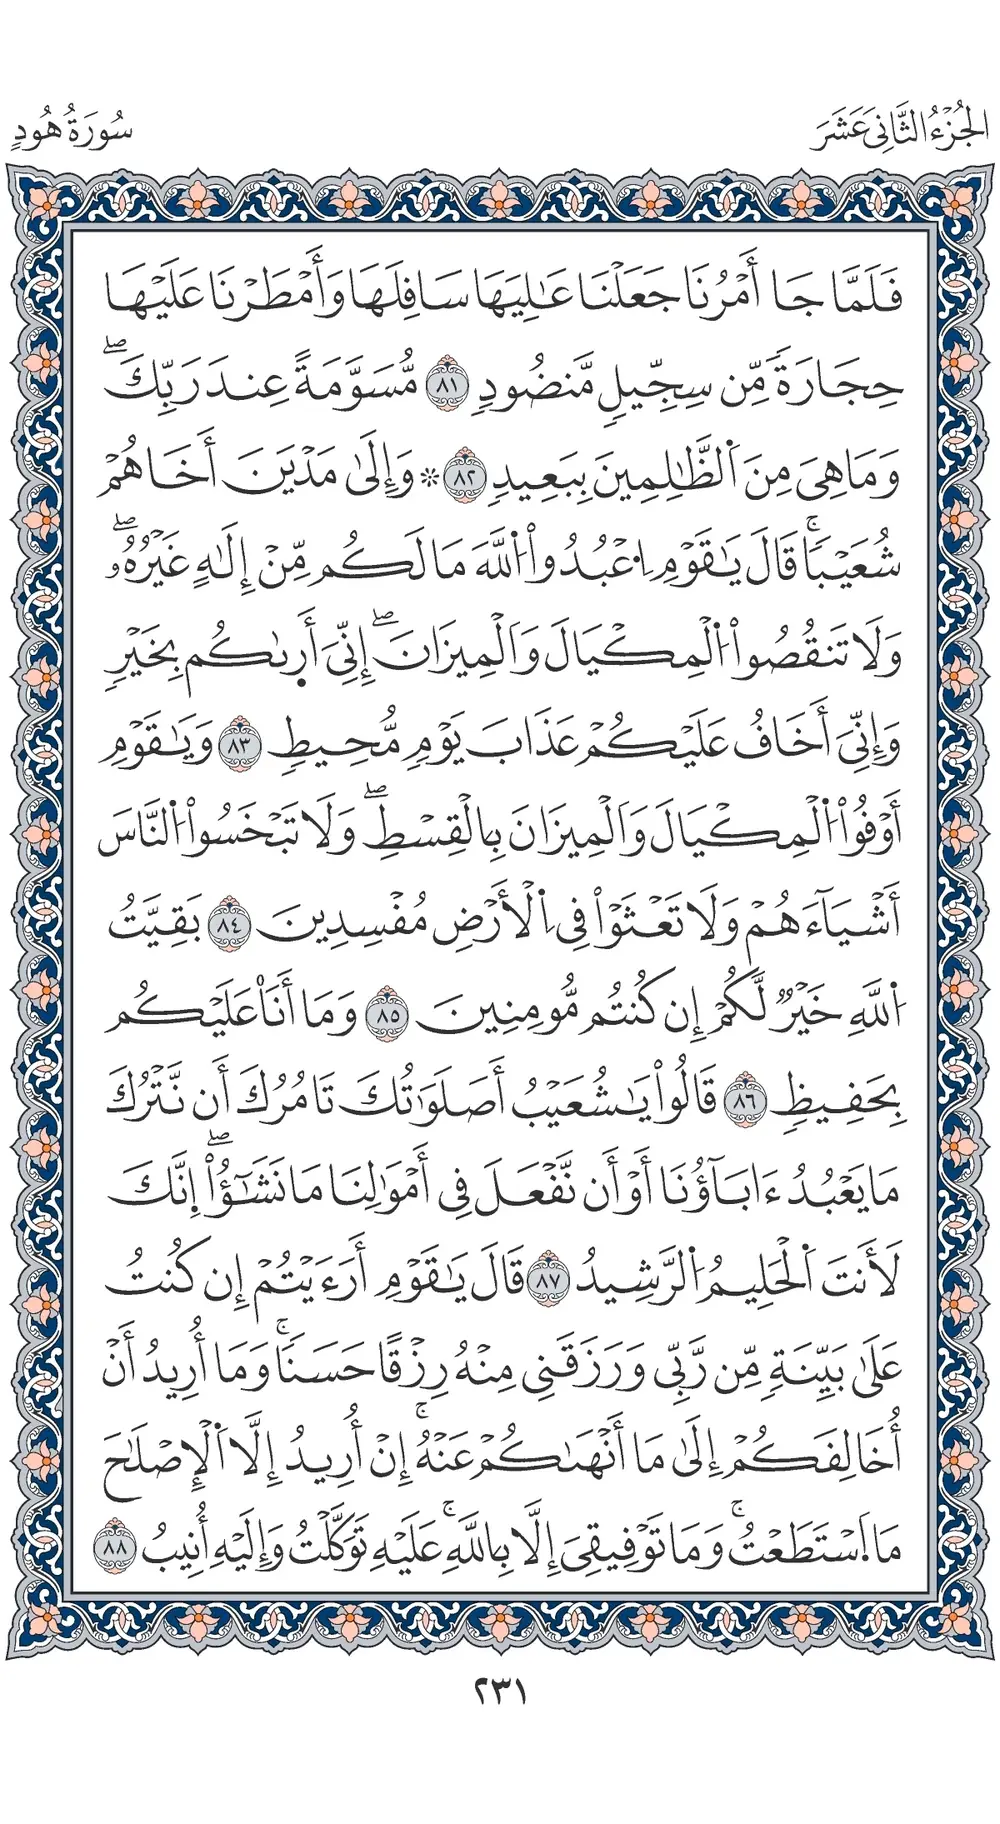 الجُزْءُ الثَّانِيَ عَشَرَ
سُورَةُ هُودٍ
فَلَمَّا جَا أَمْرُنَا جَعَلْنَا عَٰلِيَهَا سَافِلَهَا وَأَمْطَرْنَا عَلَيْهَا
حِجَارَةً مِّن سِجِّيلٍ مَّنضُودٍ ٨١ مُّسَوَّمَةً عِندَ رَبِّكَۖ
وَمَا هِيَ مِنَ اَ۬لظَّٰلِمِينَ بِبَعِيدٍ ٨٢ ۞ وَإِلَىٰ مَدْيَنَ أَخَاهُمْ
شُعَيْبٗاۚ قَالَ يَٰقَوْمِ اِ۟عْبُدُواْ اُ۬للَّهَ مَا لَكُم مِّنْ إِلَٰهٍ غَيْرُهُۥۖ
وَلَا تَنقُصُواْ اُ۬لْمِكْيَالَ وَالْمِيزَانَۖ إِنِّيَ أَر۪ىٰكُم بِخَيْرٍ
وَإِنِّيَ أَخَافُ عَلَيْكُمْ عَذَابَ يَوْمٍ مُّحِيطٍ ٨٣ وَيَٰقَوْمِ
أَوْفُواْ اُ۬لْمِكْيَالَ وَالْمِيزَانَ بِالْقِسْطِۖ وَلَا تَبْخَسُواْ اُ۬لنَّاسَ
أَشْيَآءَهُمْ وَلَا تَعْثَوْاْ فِي اِ۬لْأَرْضِ مُفْسِدِينَ ٨٤ بَقِيَّتُ
اُ۬للَّهِ خَيْرٌ لَّكُمْ إِن كُنتُم مُّومِنِينَ ٨٥ وَمَا أَنَا۠ عَلَيْكُم
بِحَفِيظٍ ٨٦ قَالُواْ يَٰشُعَيْبُ أَصَلَوَٰتُكَ تَامُرُكَ أَن نَّتْرُكَ
مَا يَعْبُدُ ءَابَآؤُنَا أَوْ أَن نَّفْعَلَ فِي أَمْوَٰلِنَا مَا نَشَٰٓؤُاْۖ إِنَّكَ
لَأَنتَ اَ۬لْحَلِيمُ اُ۬لرَّشِيدُ ٨٧ قَالَ يَٰقَوْمِ أَرَءَيْتُمْ إِن كُنتُ
عَلَىٰ بَيِّنَةٍ مِّن رَّبِّي وَرَزَقَنِي مِنْهُ رِزْقًا حَسَنٗاۚ وَمَا أُرِيدُ أَنْ
أُخَالِفَكُمْ إِلَىٰ مَا أَنْهَىٰكُمْ عَنْهُۚ إِنْ أُرِيدُ إِلَّا اَ۬لْإِصْلَٰحَ
مَا اَ۪سْتَطَعْتُۚ وَمَا تَوْفِيقِيَ إِلَّا بِاللَّهِۚ عَلَيْهِ تَوَكَّلْتُ وَإِلَيْهِ أُنِيبُ ٨٨
٢٣١